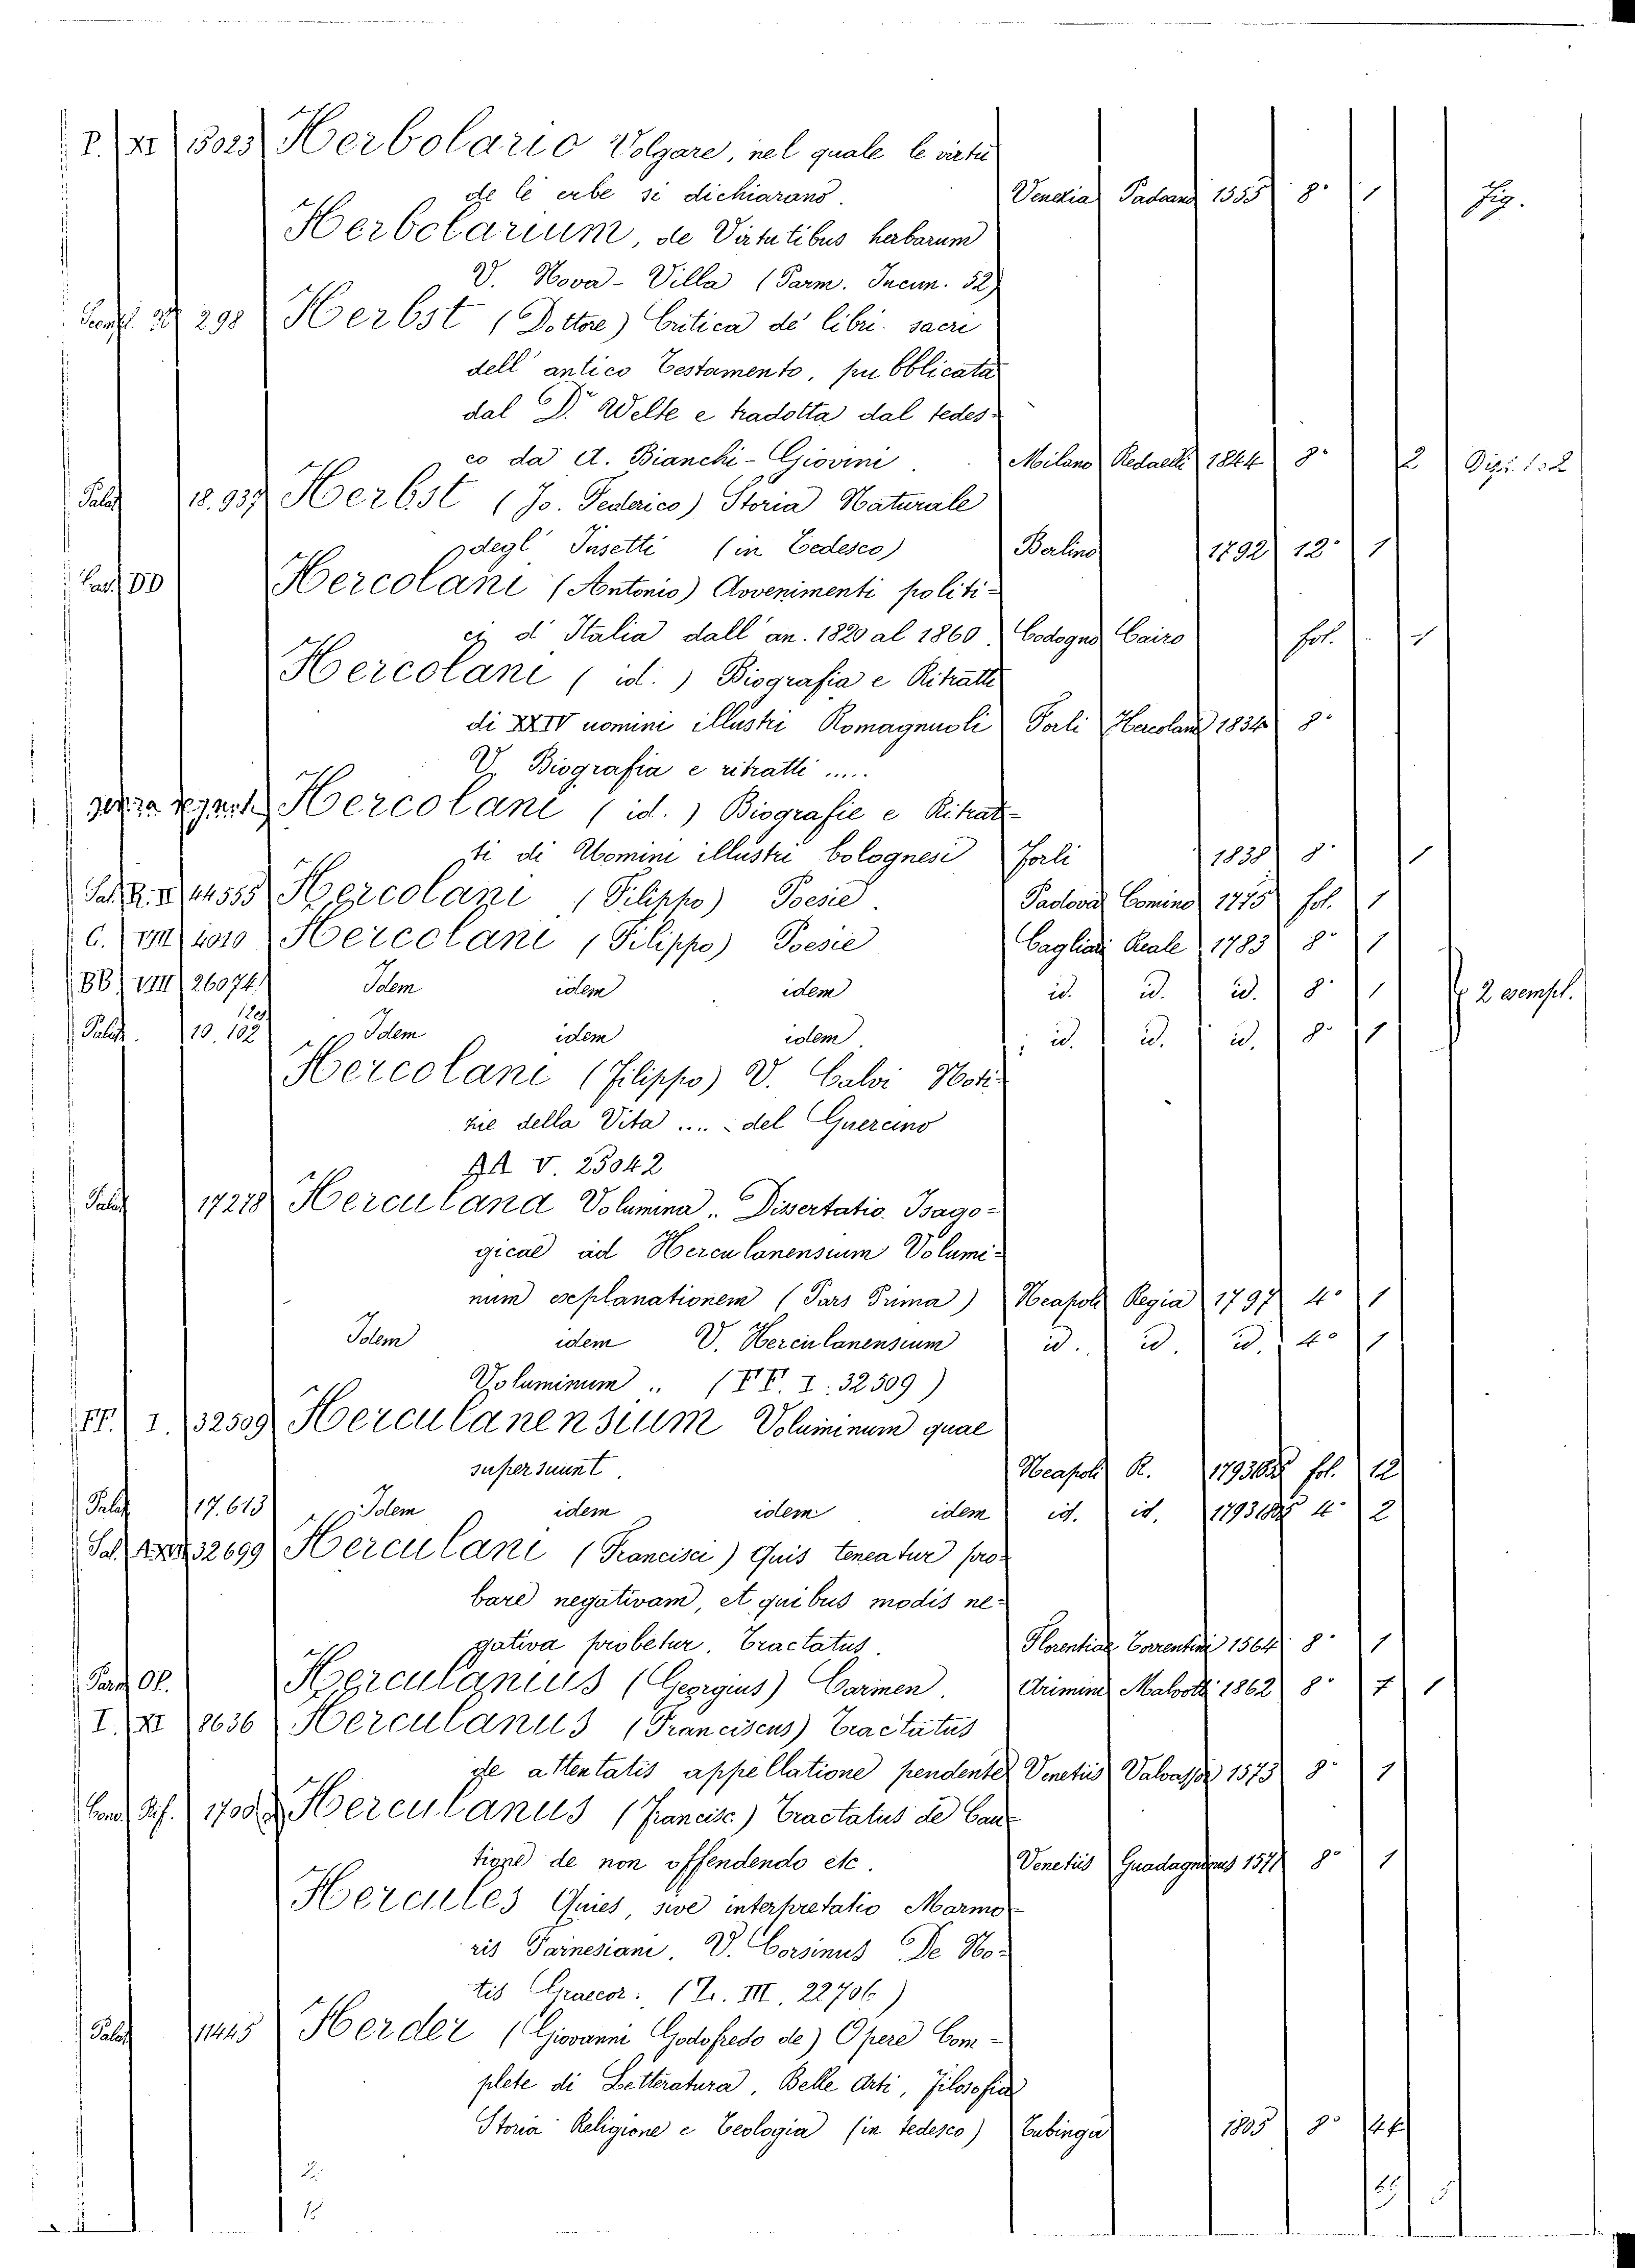 P. XI 5025 Herbolario Volgare, nel quale le virtu
de le erbe si dichiarano. Venetia Padoano 1555 8° 1 Fig.
Herbolarium, de Virtutibus herbarum
V. Nova-Villa (Parm. Incun. 52)
298 Herbst (Dottore) Critica de' libri sacri
dell' antico Testamento, pubblicata
dal Dr. Welte e tradotta dal tedes-
co da A. Bianchi-Giovini. Milano Redaelli 1844 8° 2
Palat. 18.937 Herbst (Jo. Federico) Storia Naturale
degl' Insetti (in Tedesco) Berlino 1792 12° 1
Hercolani (Antonio) Avvenimenti politi-
ci d' Italia dall' an. 1820 al 1860. Codogno Cairo fol. 1
Hercolani (id.) Biografia e Ritratti
di XXIV uomini illustri Romagnuoli Forli Hercolani 1834 8°
V. Biografia e ritratti .....
Hercolani (id.) Biografie e Ritrat-
ti di Uomini illustri bolognesi Forli 1838 8° 1
14555 Hercolani (Filippo) Poesie. Padova Comino 1775 fol. 1
C. VIII 4010 Hercolani (Filippo) Poesie Cagliari Reale 1783 8° 1
BB VIII 26074 Idem idem idem id. id. id. 8° 1 2 esempl.
Palat. 10.102 Idem idem idem. id. id. id. 8° 1
Hercolani (Filippo) V. Calvi Noti-
zie della Vita .... del Guercino
AA V. 25042
Palat. 17278 Herculana Volumina. Dissertatio Isago-
gicae ad Herculanensium Volumi-
num explanationem (Pars Prima) Neapoli Regia 1797 4° 1
Idem idem V. Herculanensium id. id. id. 4° 1
Voluminum .. (FF. I. 32509)
FF. I. 32509 Herculanensium Voluminum quae
supersunt. Neapoli R. 1793 fol. 12
Palat. 17.613 Idem idem idem idem id. id. 1793 4° 2
32699 Herculani (Francisci) Quis teneatur pro-
bare negativam, et quibus modis ne-
gativa probetur. Tractatus. Florentiae Torrentini 1564 8° 1
Herculanius (Georgius) Carmen. Arimini Malvolti 1862 8° 7 1
I. XI 8636 Herculanus (Franciscus) Tractatus
de attentatis appellatione pendente Venetiis Valvassori 1573 8° 1
1700 Herculanus (Francisc.) Tractatus de Cau-
tione de non offendendo etc. Venetiis Guadagninus 1571 8° 1
Hercules Quies, sive interpretatio Marmo-
ris Farnesiani. V. Corsinus De No-
tis Graecor. (Z. III. 22706)
Palat. 11445 Herder (Giovanni Godofredo de) Opere Com-
plete di Letteratura, Belle Arti, Filosofia
Storia Religione e Teologia (in tedesco) Tubinga 1805 8° 44